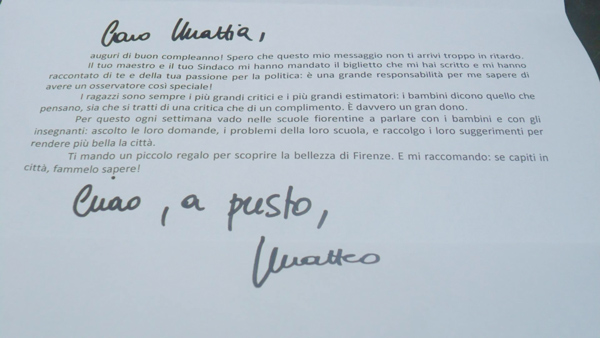 Caro Mattia,
auguri di buon compleanno! Spero che questo mio messaggio non ti arrivi troppo in ritardo.
Il tuo maestro e il tuo Sindaco mi hanno mandato il biglietto che mi hai scritto e mi hanno
raccontato di te e della tua passione per la politica: è una grande responsabilità per me sapere di
avere un osservatore così speciale!
I ragazzi sono sempre i più grandi critici e i più grandi estimatori: i bambini dicono quello che
pensano, sia che si tratti di una critica che di un complimento. È davvero un gran dono.
Per questo ogni settimana vado nelle scuole fiorentine a parlare con i bambini e con gli
insegnanti: ascolto le loro domande, i problemi della loro scuola, e raccolgo i loro suggerimenti per
rendere più bella la città.
Ti mando un piccolo regalo per scoprire la bellezza di Firenze. E mi raccomando: se capiti in
città, fammelo sapere!
Ciao, a presto,
Matteo